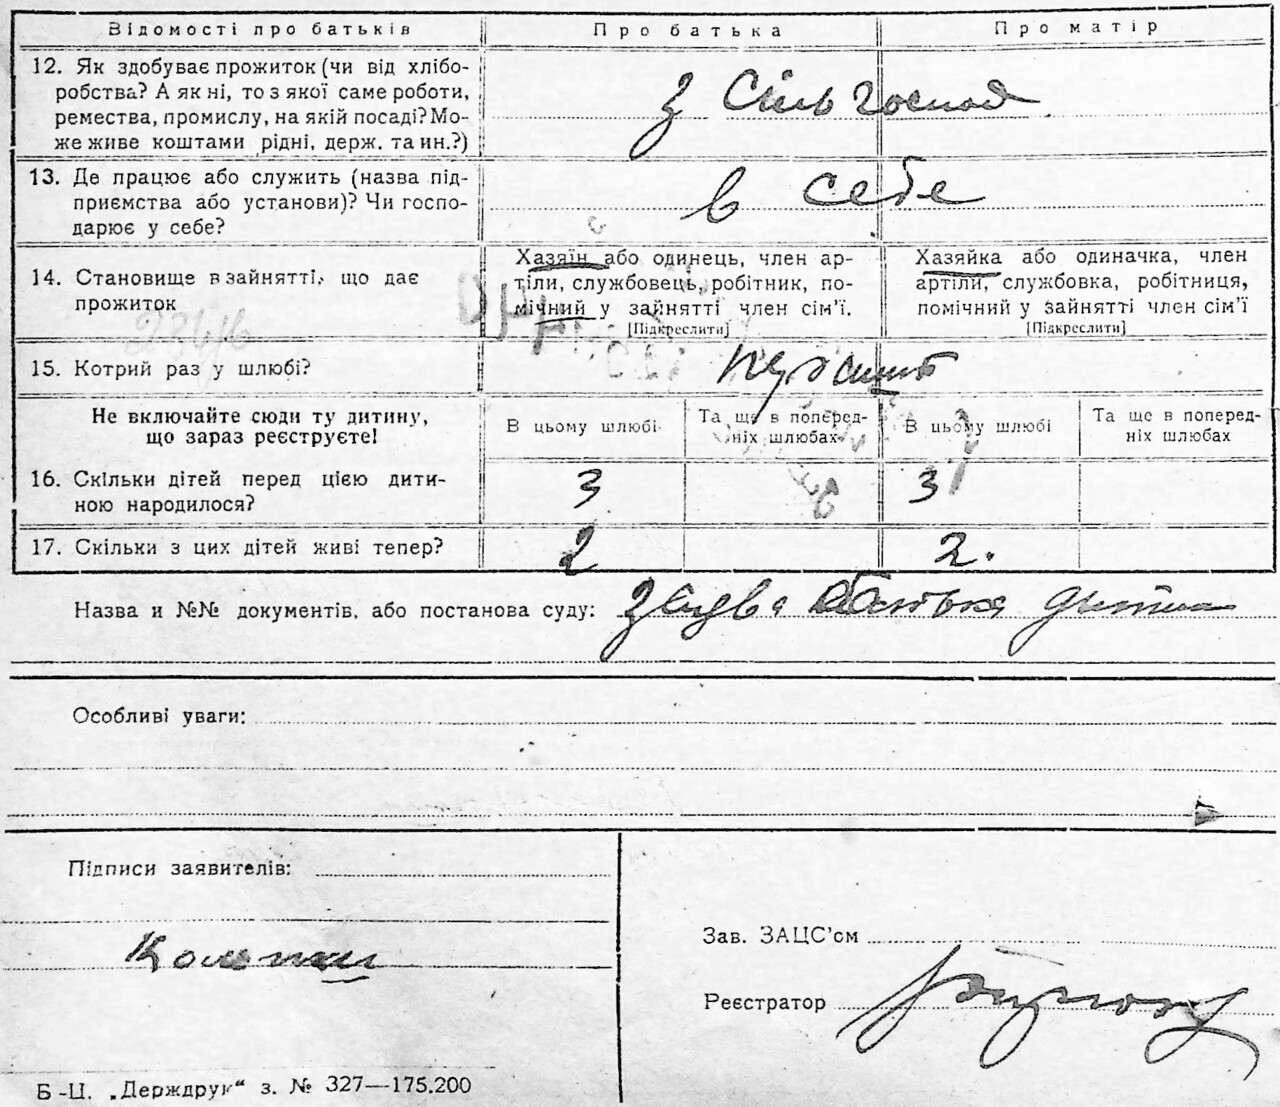 Відомості про батьків
Про батька
Про матір
12. Як здобуває прожиток (чи від хлібо-
робства? А як ні, то з якої саме роботи,
ремества, промислу, на якій посаді? Мо-
же живе коштами рідні, держ. та ин.?)
з Сільгоспод
13. Де працює або служить (назва під-
приємства або установи)? Чи госпо-
дарює у себе?
в себе
14. Становище в зайнятті, що дає
прожиток
Хазяїн або одинець, член ар-
тіли, службовець, робітник, по-
мічний у зайнятті член сім'ї.
[Підкреслити]
Хазяйка або одиначка, член
артіли, службовка, робітниця,
помічний у зайнятті член сім'ї
[Підкреслити]
15. Котрий раз у шлюбі?
Не включайте сюди ту дитину,
що зараз реєструєте!
В цьому шлюбі
Та ще в поперед-
ніх шлюбах
В цьому шлюбі
Та ще в поперед-
ніх шлюбах
16. Скільки дітей перед цією дити-
ною народилося?
3
3
17. Скільки з цих дітей живі тепер?
2
2.
Назва и №№ документів, або постанова суду:
батька
Особливі уваги:
Підписи заявителів:
Зав. ЗАЦС'ом
Реєстратор
Б-Ц. „Держдрук" з. № 327—175.200